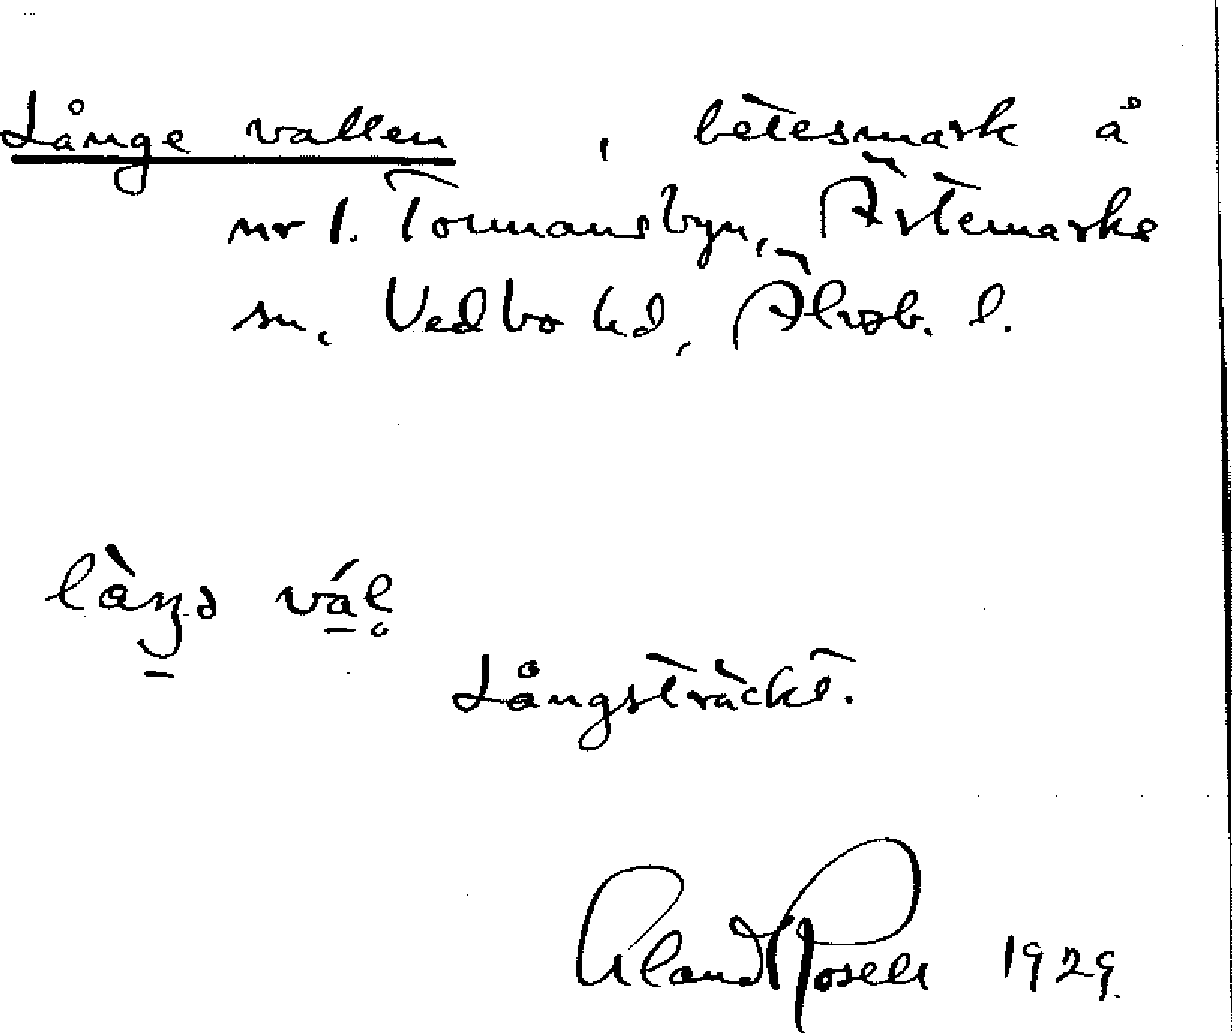 Långe vallen, betesmark å
nr 1. Tormansbyn, Ärtemarks
sn, Vedbo hd, Älvsb. l.
Långsträckt.
Erland Rosell 1929.